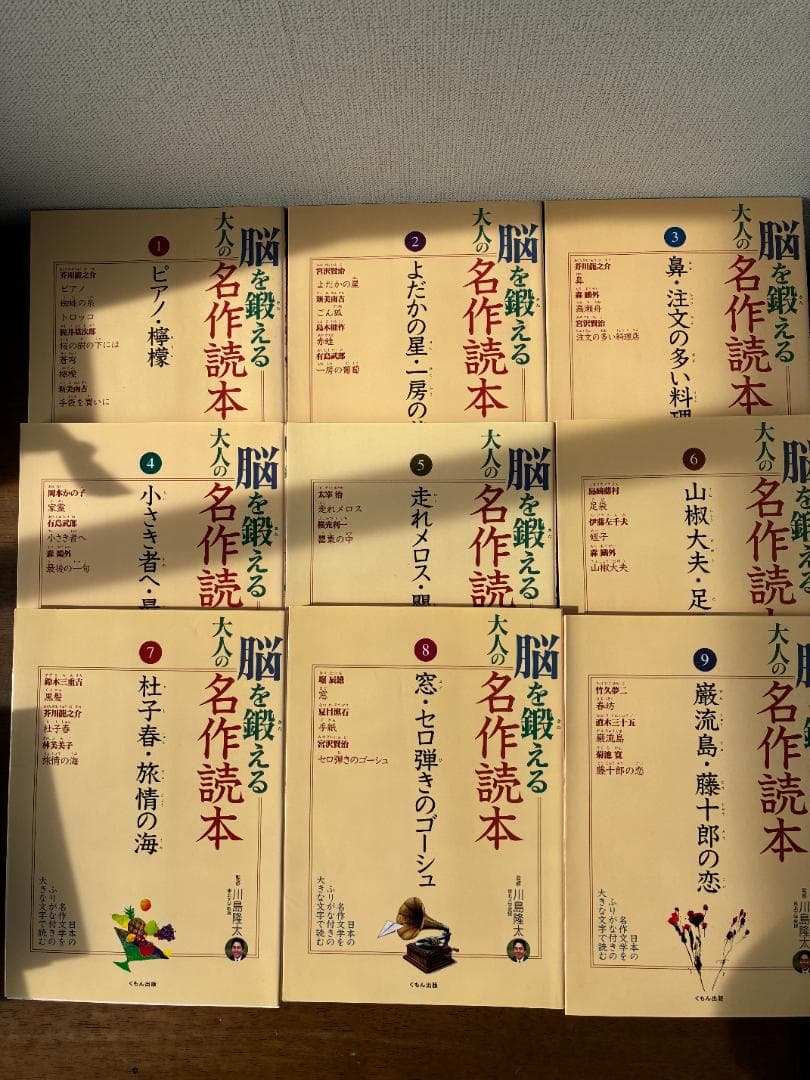 脳を鍛える
大人の
名作読本
1
ピアノ・檸檬
芥川龍之介
ピアノ
蜘蛛の糸
トロッコ
梶井基次郎
桜の樹の下には
蒼穹
檸檬
新美南吉
手袋を買いに
脳を鍛える
大人の
名作読本
2
よだかの星・一房の
宮沢賢治
よだかの星
新美南吉
ごん狐
島木健作
赤蛙
有島武郎
一房の葡萄
脳を鍛える
大人の
名作読本
3
鼻・注文の多い料理
芥川龍之介
鼻
森 鷗外
高瀬舟
宮沢賢治
注文の多い料理店
脳を鍛える
大人の
名作読
4
小さき者へ・最
岡本かの子
家霊
有島武郎
小さき者へ
森 鷗外
最後の一句
脳を鍛える
大人の
名作読
5
走れメロス・
太宰 治
走れメロス
横光利一
罌粟の中
脳を鍛える
大人の
名作読
6
山椒大夫・足
島崎藤村
足袋
伊藤左千夫
姪子
森 鷗外
山椒大夫
脳を鍛える
大人の
名作読本
7
杜子春・旅情の海
鈴木三重吉
黒髪
芥川龍之介
杜子春
林芙美子
旅情の海
監修 川島隆太
日本の
名作文学を
ふりがな付きの
大きな文字で読む
くもん出版
脳を鍛える
大人の
名作読本
8
窓・セロ弾きのゴーシュ
堀 辰雄
窓
夏目漱石
手紙
宮沢賢治
セロ弾きのゴーシュ
監修 川島隆太
日本の
名作文学を
ふりがな付きの
大きな文字で読む
くもん出版
脳を鍛える
大人の
名作読本
9
巌流島・藤十郎の恋
竹久夢二
春坊
直木三十五
巌流島
菊池 寛
藤十郎の恋
監修 川島隆太
日本の
名作文学を
ふりがな付きの
大きな文字で読む
くもん出版